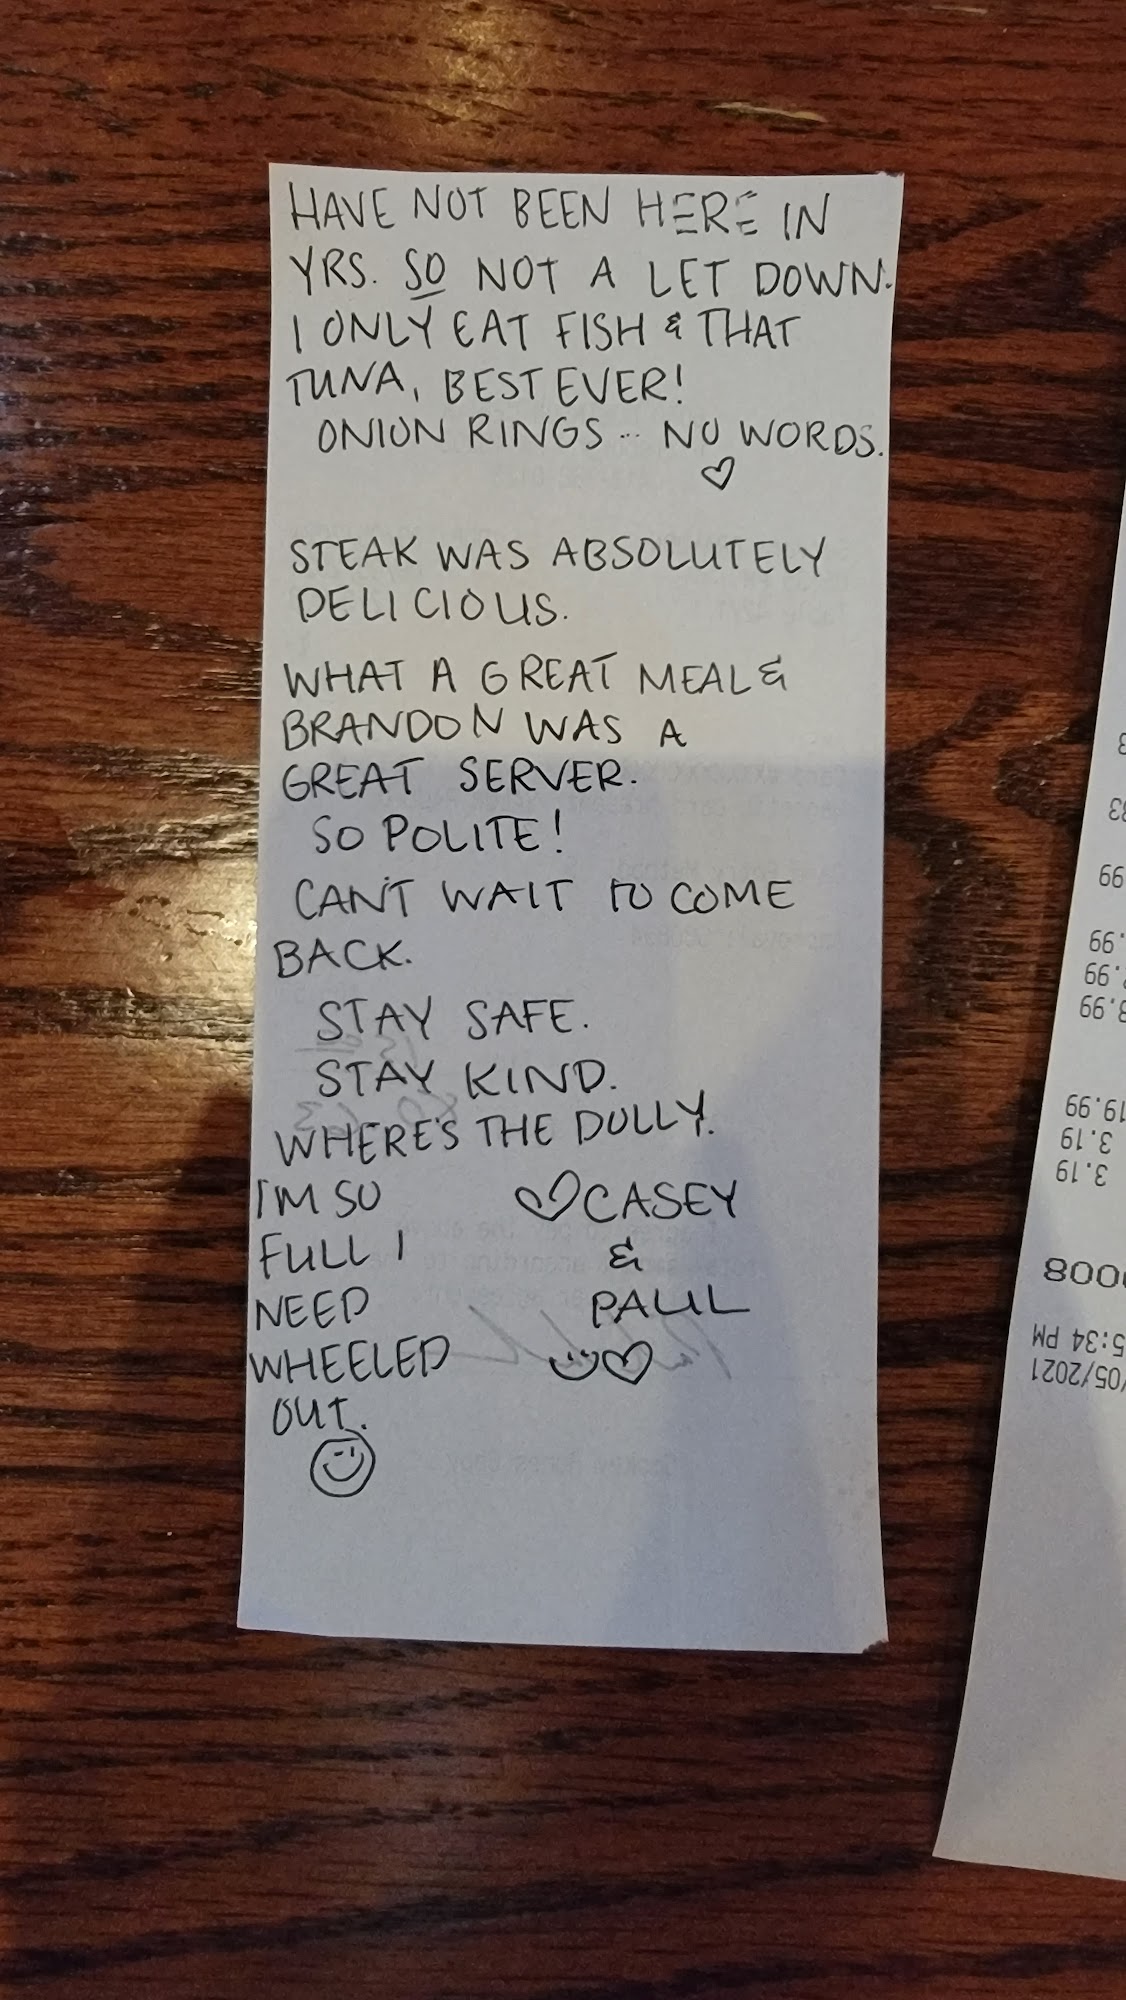 HAVE NOT BEEN HERE IN
YRS. SO NOT A LET DOWN.
I ONLY EAT FISH & THAT
TUNA, BEST EVER!
ONION RINGS... NO WORDS.
♡
STEAK WAS ABSOLUTELY
DELICIOUS.
WHAT A GREAT MEAL &
BRANDON WAS A
GREAT SERVER.
SO POLITE!
CAN'T WAIT TO COME
BACK.
STAY SAFE.
STAY KIND.
WHERE'S THE DOLLY.
I'M SO
FULL I
NEED
WHEELED
OUT.
♡CASEY
&
PAUL
19.99
3.19
3.19
5:34 PM
/05/2021